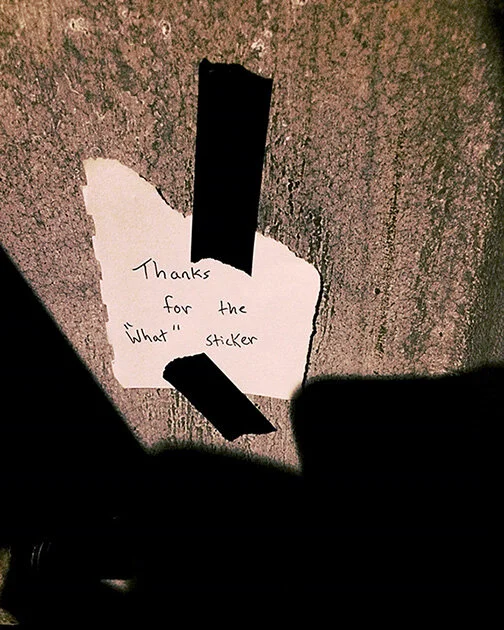 Thanks
for the
"What" sticker